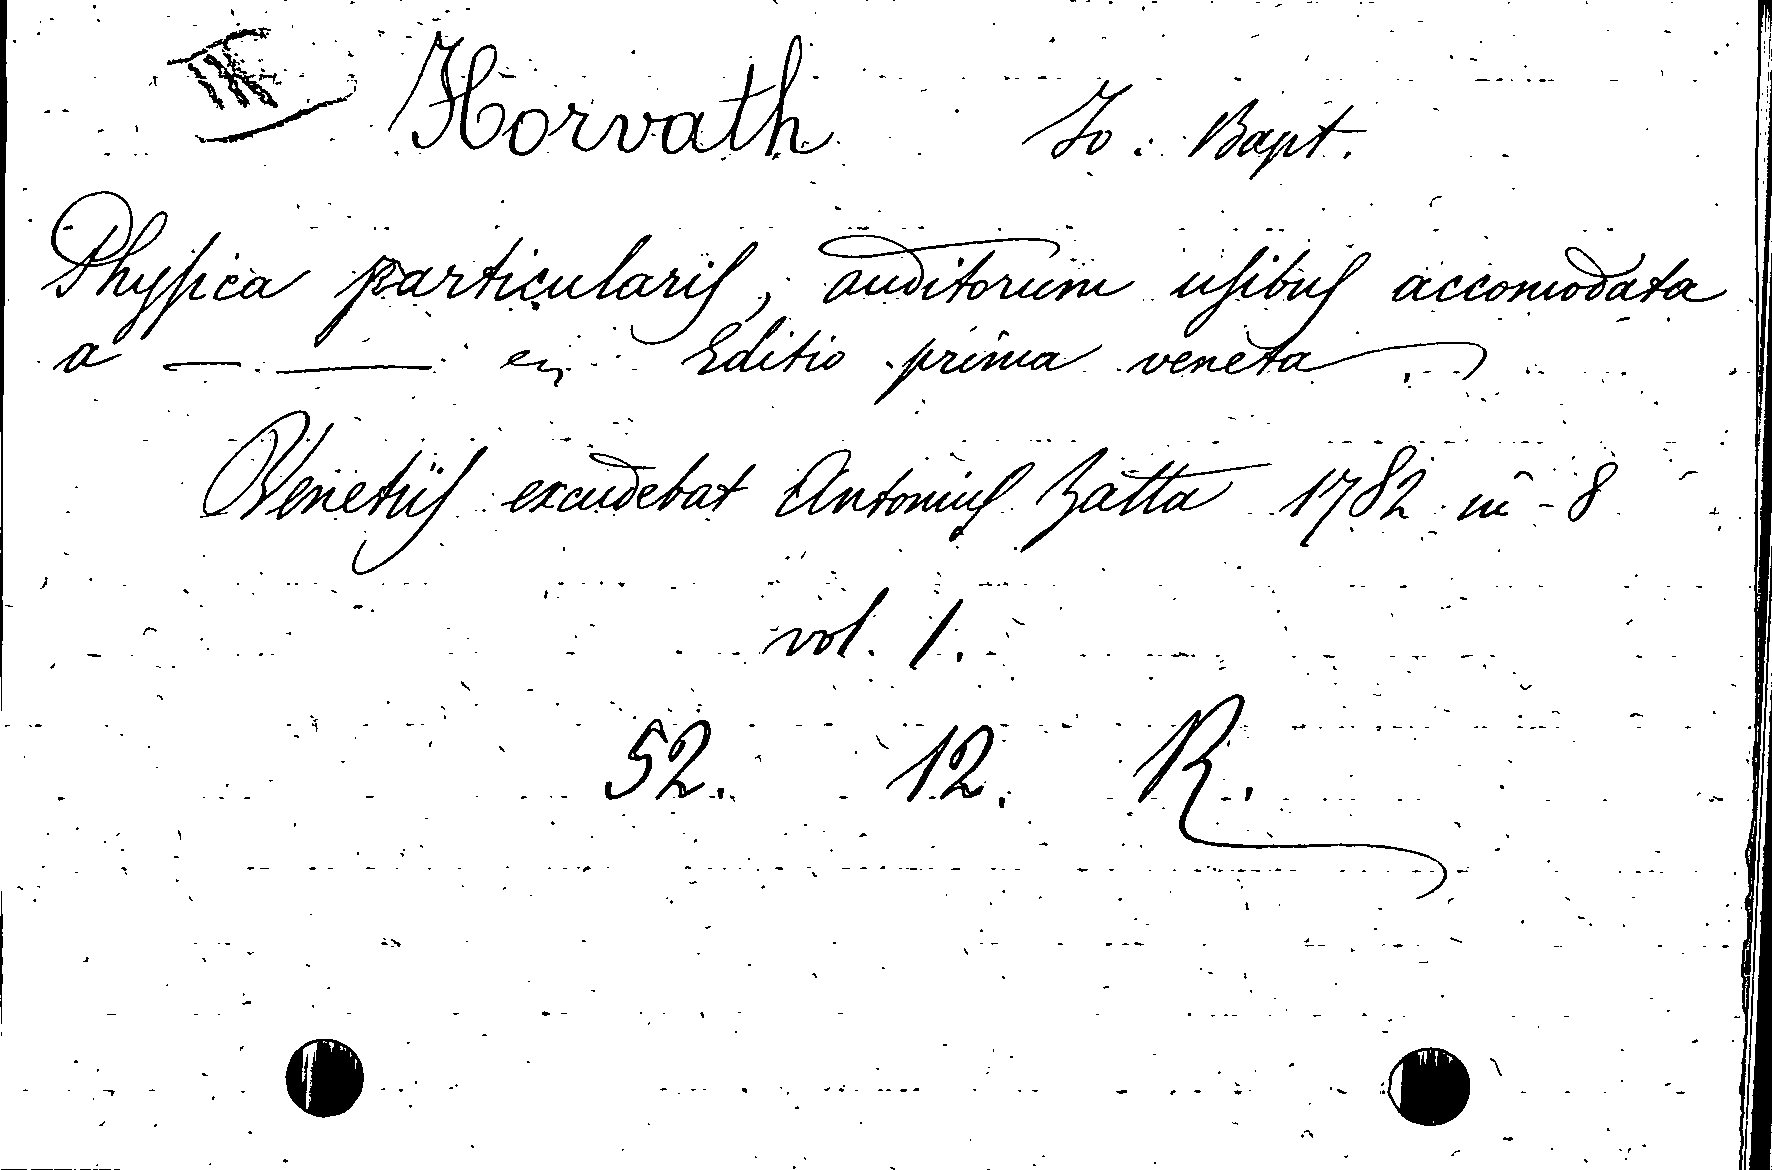 III Horvath Jo: Bapt.
Physica particularis, auditorum usibus accomodata
a — —— Editio prima veneta
Venetiis excudebat Antonius Zatta 1782 in-8
vol. 1.
52. 12. R.